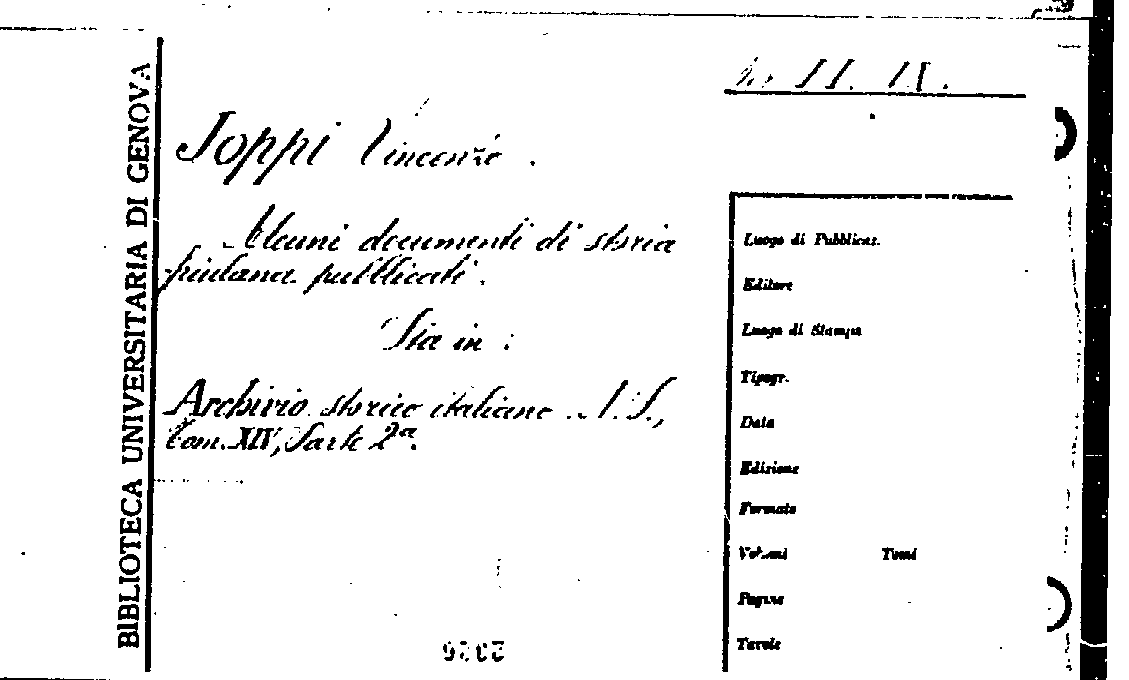 BIBLIOTECA UNIVERSITARIA DI GENOVA
II. IX.
Joppi Vincenzo.
Alcuni documenti di storia
friulana pubblicati.
Sta in:
Archivio storico italiano. N. S.,
Tom. XIV, Parte 2ª.
Luogo di Pubblicaz.
Editore
Luogo di Stampa
Tipogr.
Data
Edizione
Formato
Volumi Tomi
Pagine
Tavole